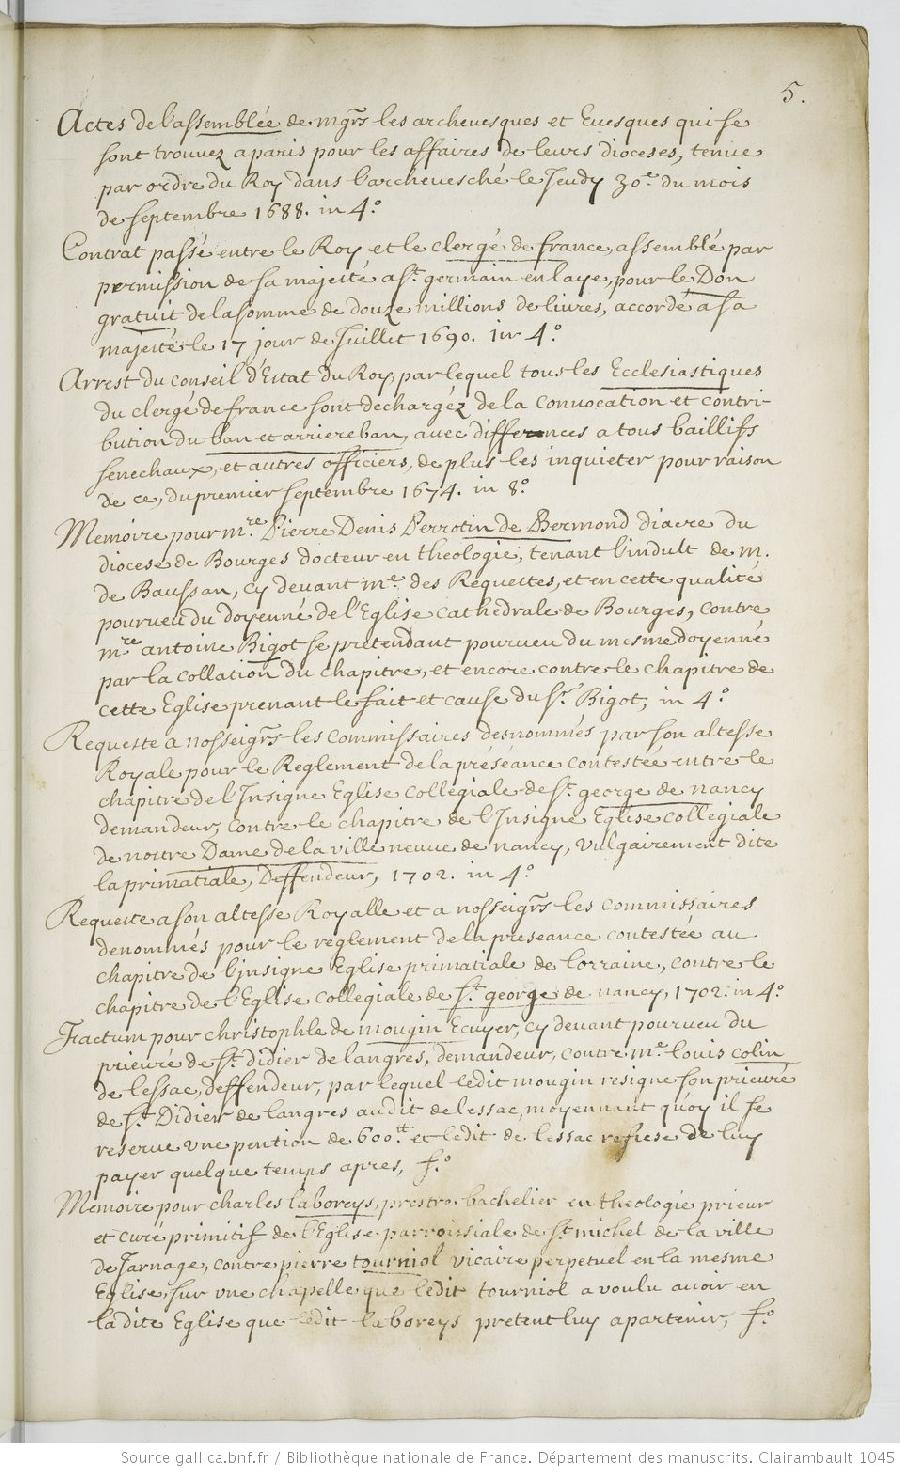 5.
Actes de l'assemblée de mgrs les archevesques et Evesques qui se
sont trouvez a paris pour les affaires de leurs dioceses, tenue
par ordre du Roy dans l'archevesché le Jeudy 30.e du mois
de septembre 1688. in 4.o
Contrat passé entre le Roy et le clergé de france, assemblé par
permission de sa majesté a st. germain en laye, pour le Don
gratuit de la somme de douze millions de livres, accordé a sa
majesté le 17 jour de Juillet 1690. in 4.o
Arrest du conseil d'Estat du Roy par lequel tous les Ecclesiastiques
du clergé de france sont dechargéz de la convocation et contri-
bution du ban et arriere ban, avec differences a tous baillifs
senechaux, et autres officiers, de plus les inquieter pour raison
de ce, du premier septembre 1674. in 8.o
Memoire pour m.re Pierre Denis Perrotin de Bermond diacre du
diocese de Bourges docteur en theologie, tenant l'indult de m.
de Baussan, cy devant m.e des Requestes, et en cette qualité
pourveu du doyenné de l'Eglise cathedrale de Bourges, contre
m.re antoine Bigot se pretendant pourveu du mesme doyenné
par la collation du chapitre, et encore contre le chapitre de
cette Eglise prenant le fait et cause du Sr. Bigot, in 4.o
Requeste a nosseigrs les commissaires desnommés par son altesse
Royale pour le Reglement de la préséance contestée entre le
chapitre de l'Insigne Eglise collegiale de St. george de nancy
demandeur, contre le chapitre de l'Insigne Eglise collegiale
de nostre Dame de la ville neuve de nancy, vulgairement dite
la primatiale, Deffendeur, 1702. in 4.o
Requeste a son altesse Royalle et a nosseigrs les commissaires
denommés pour le reglement de la preseance contestée au
chapitre de l'insigne Eglise primatiale de lorraine, contre le
chapitre de l'Eglise collegiale de St. george de nancy, 1702. in 4.o
Factum pour christophle de mougin Ecuyer, cy devant pourveu du
prieuré de St. didier de langres, demandeur, contre m.e louis colin
de lessac, deffendeur, par lequel ledit mougin resigne son prieuré
de St. Didier de langres audit de lessac, moyennant quoy il se
reserve une pention de 600.tt et ledit de lessac refuse de luy
payer quelque temps apres, f.o
Memoire pour charles laboreys, prestre bachelier en theologie prieur
et curé primitif de l'Eglise parroissiale de St. michel de la ville
de Jarnage, contre pierre tourniol vicaire perpetuel en la mesme
Eglise, sur une chapelle que ledit tourniol a voulu avoir en
ladite Eglise que ledit laboreys pretent luy apartenir, f.o
Source gallica.bnf.fr / Bibliothèque nationale de France. Département des manuscrits. Clairambault 1045